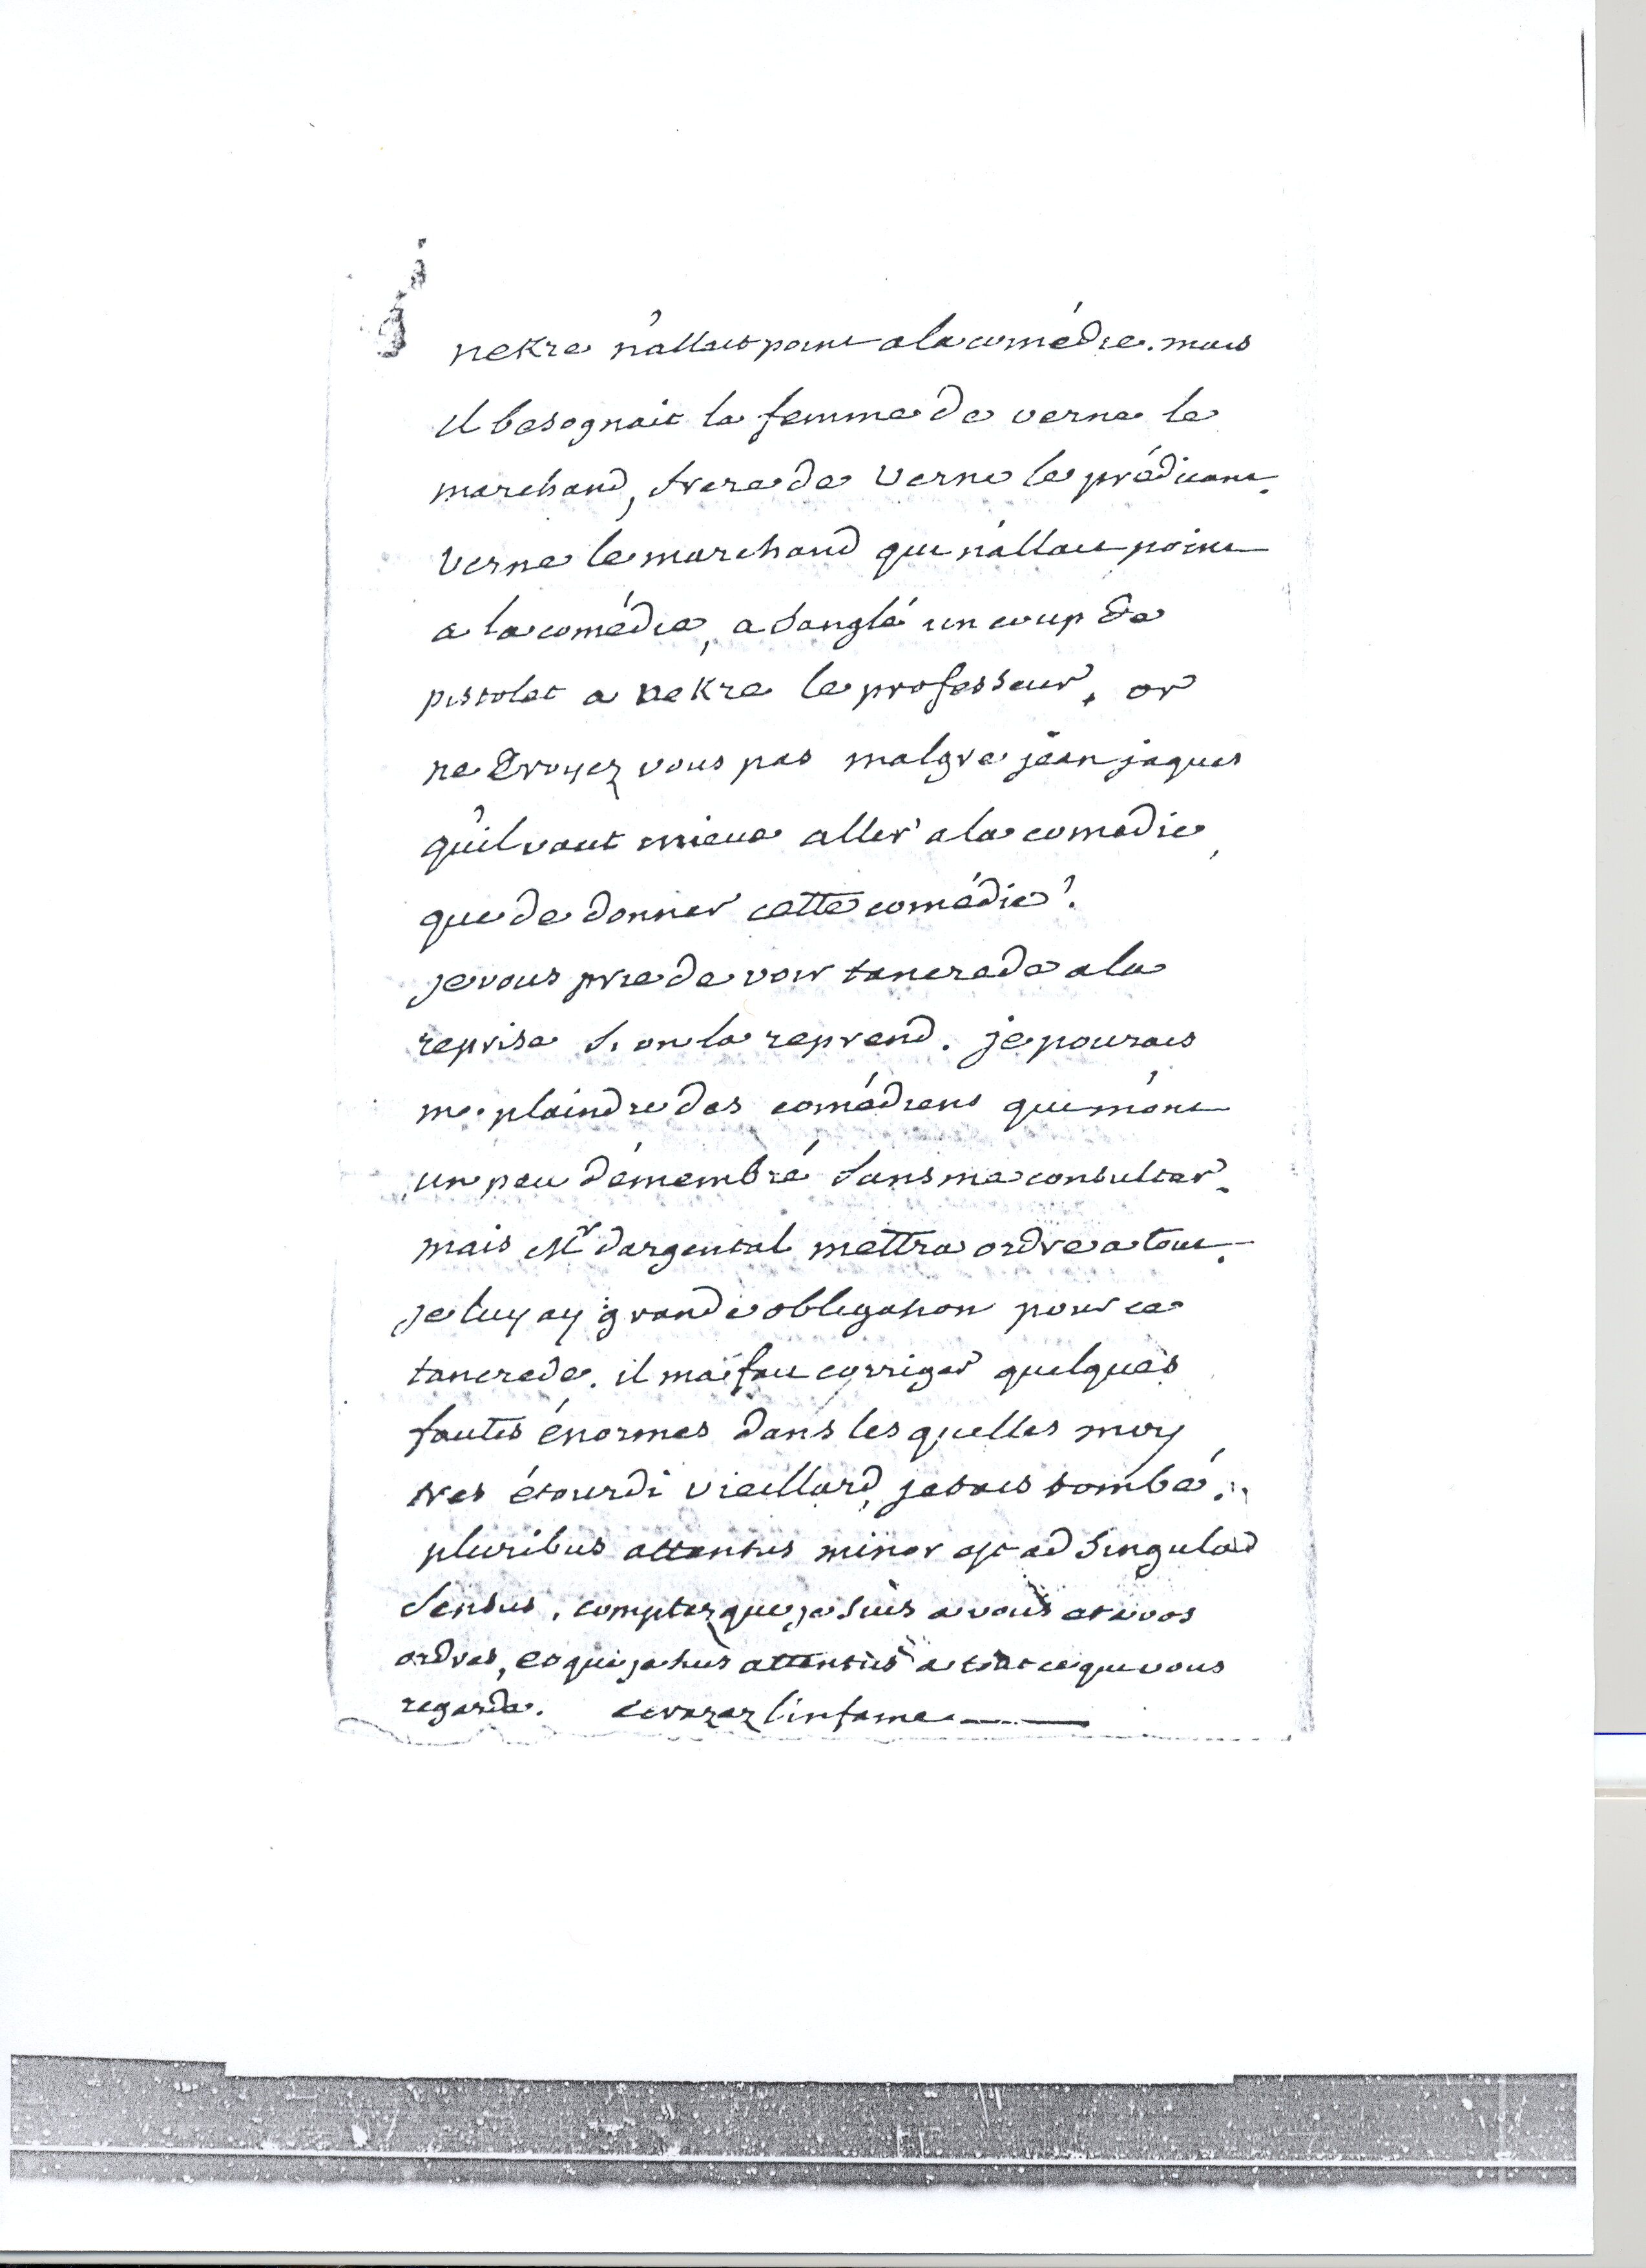 nekre n'allait point a la comédie. mais
il besognait la femme de verne le
marchand, frere de verne le prédicant.
verne le marchand qui n'allait point
a la comédie, a sanglé un coup de
pistolet a nekre le professeur. or
ne croyez vous pas malgre jean jaques
qu'il vaut mieux aller a la comedie,
que de donner cette comédie?
je vous prie de voir tancrede a la
reprise si on la reprend. je pourais
me plaindre des comédiens qui m'ont
un peu démembré sans me consulter.
mais Mr dargental mettra ordre a tout.
je luy ay grande obligation pour ce
tancrede. il m'a fait corriger quelques
fautes énormes dans les quelles moy
tres étourdi vieillard, jetais tombé.
pluribus attentus minor est ad singula
sensus. comptez que je suis a vous et a vos
ordres, et que je suis attentus a tout ce que vous
regarde. ecrazez l'infame